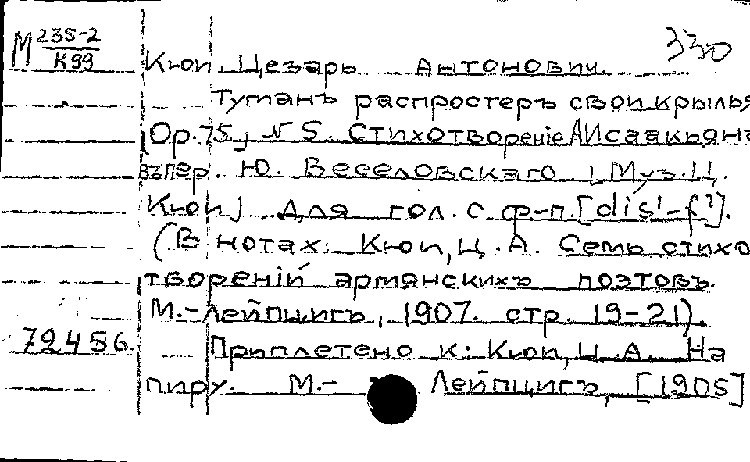 М 235-2
К99
330
Кюи, Цезарь Антонович.
Туманъ распростеръ свои крылья
Op.75, №5. Стихотвореніе А.Исаакьянъ
въ пер. Ю. Веселовскаго, Муз. Ц.
Кюи, Для гол. с ф-п. [dis'-f²].
(В нотах: Кюи, Ц. А. Семь стихо
твореній армянскихъ поэтовъ.
М.-Лейпцигъ, 1907. стр. 19-21).
72456. Приплетено к: Кюи, Ц. А. На
пиру. М.- Лейпцигъ, [1905]